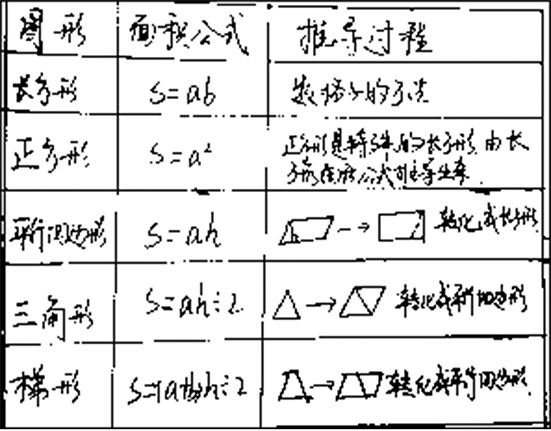 图形 面积公式 推导过程
长方形 S=ab 数格子的方法
正方形 S=a² 正方形是特殊的长方形,由长
方形面积公式推导出来.
平行四边形 S=ah → 转化成长方形
三角形 S=ah÷2 → 转化成平行四边形
梯形 S=(a+b)h÷2 → 转化成平行四边形